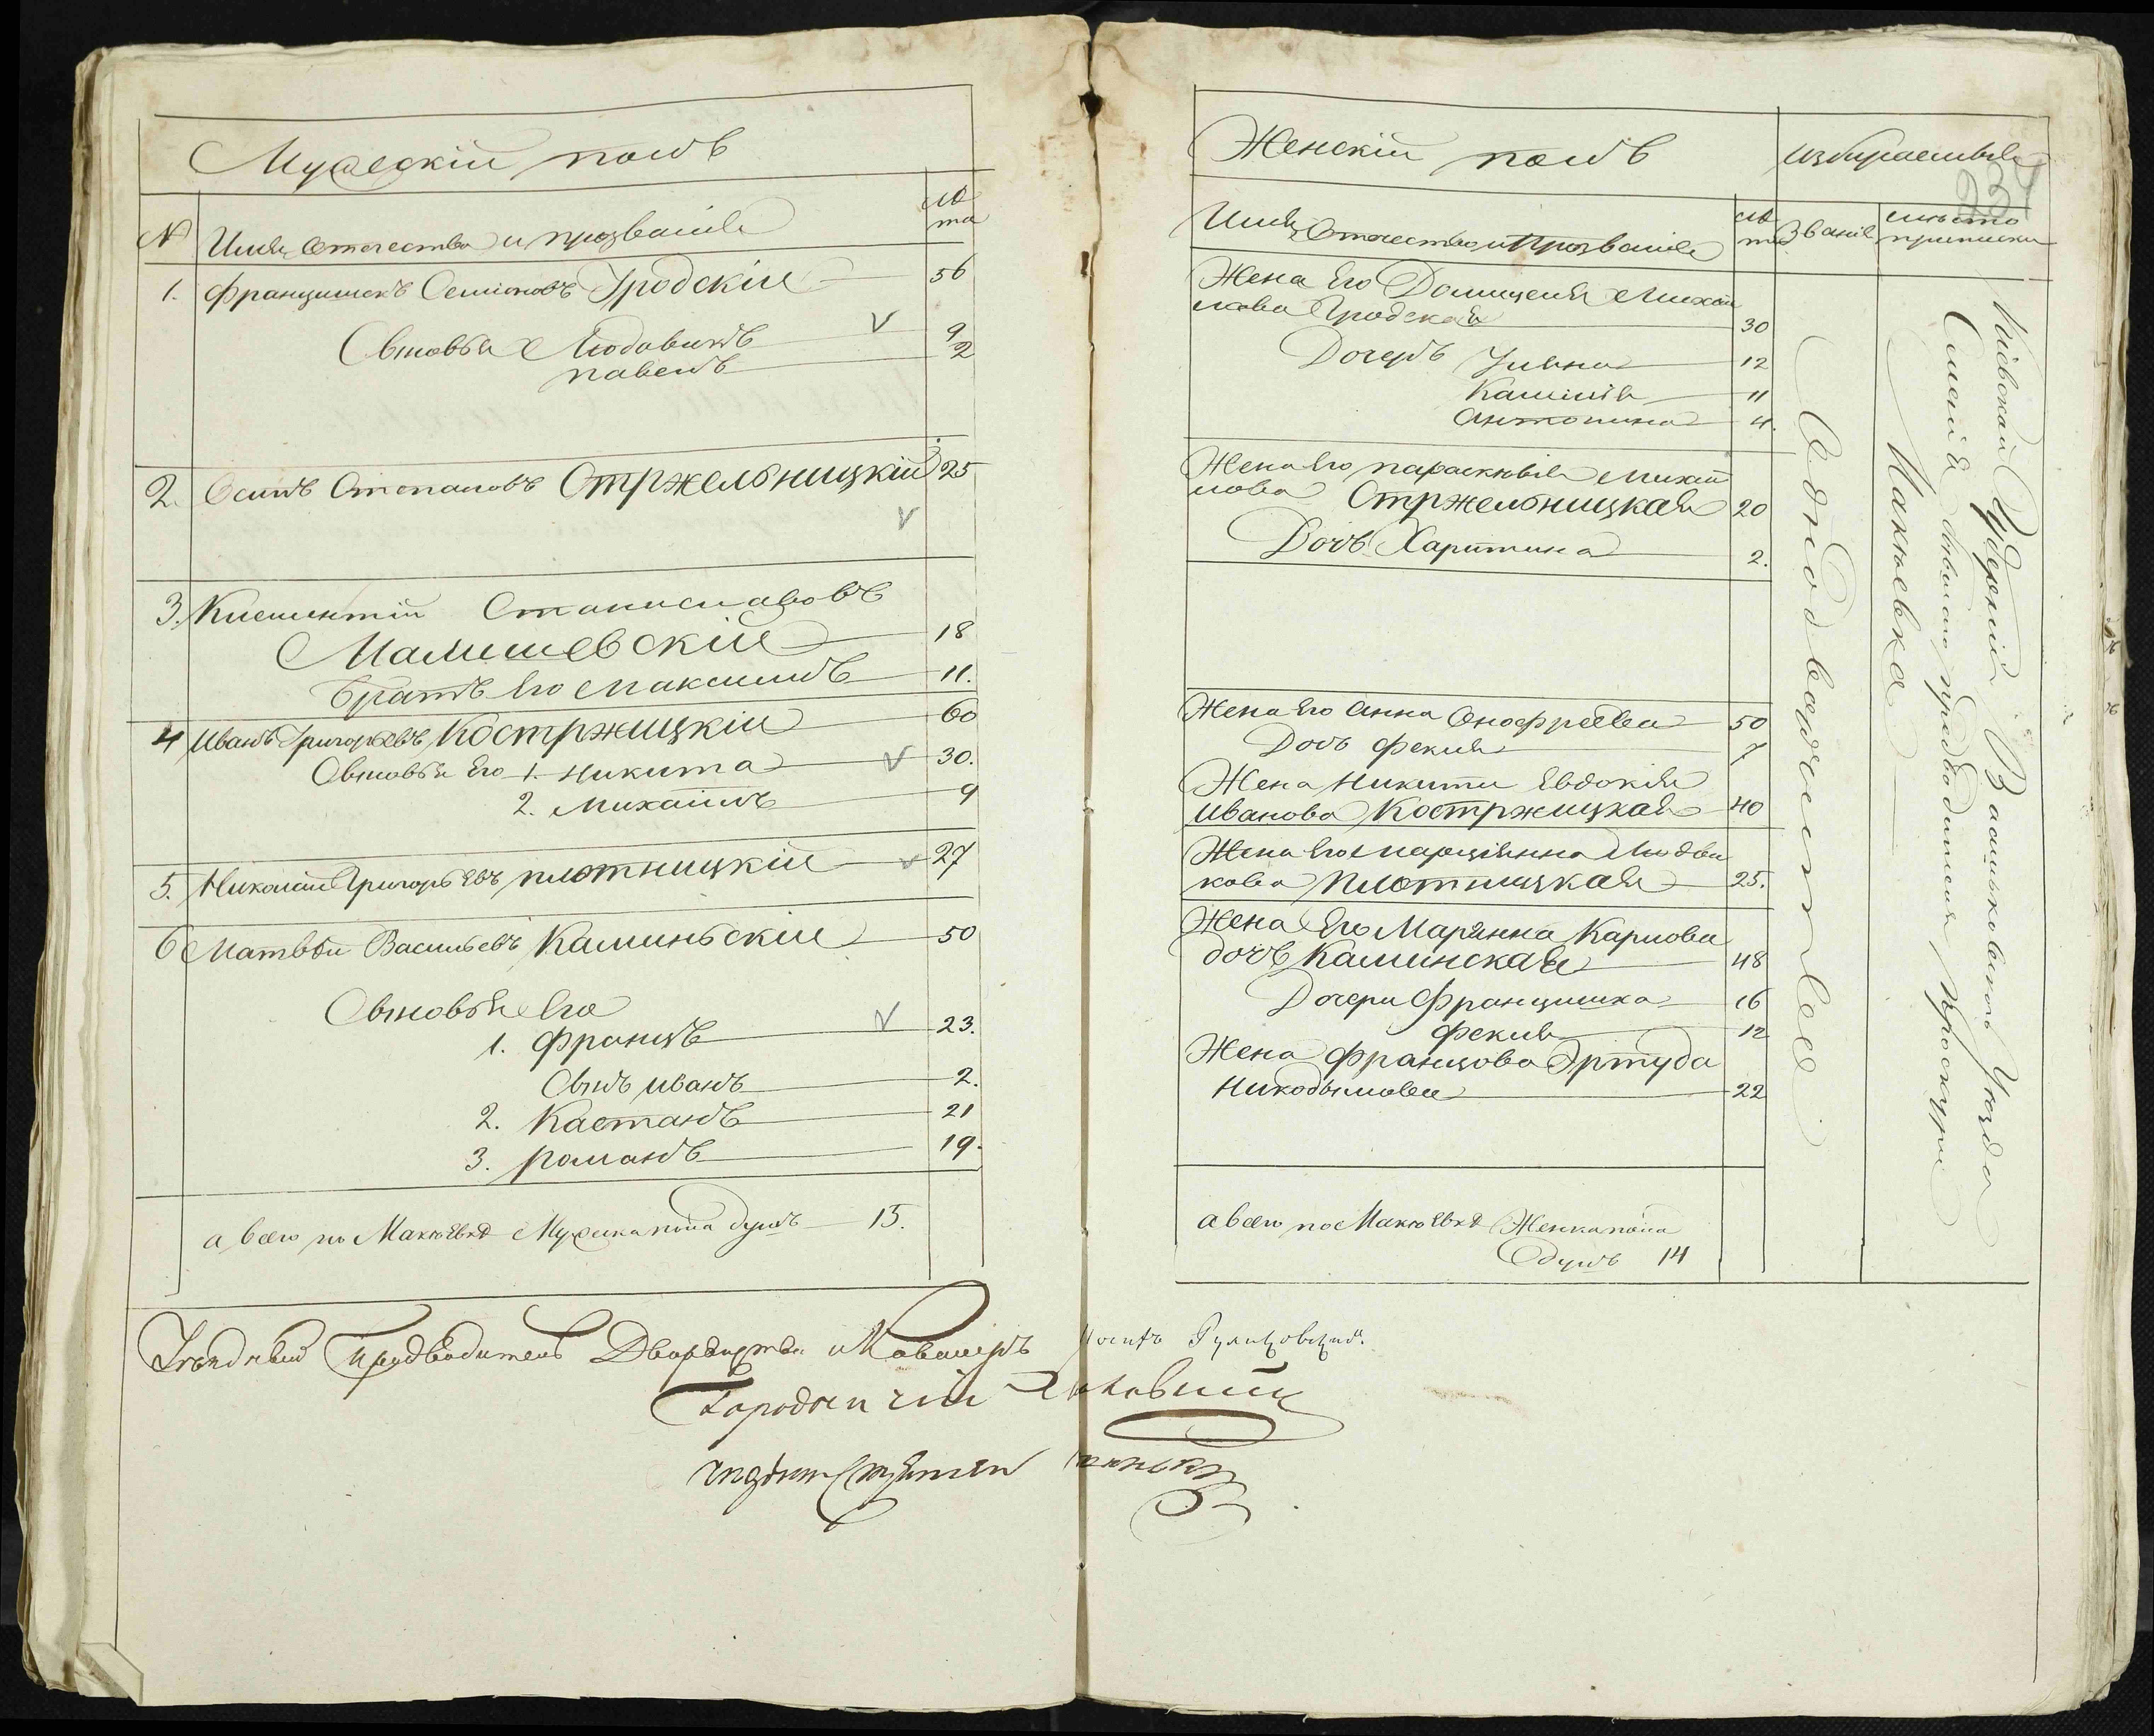 Мужескій полъ
№ Имя, Отечество и прозваніе лѣта
1. Францишекъ Семіоновъ Гродскій 56
Сыновья Людовикъ 9
павелъ 2
2. Осипъ Степановъ Стржельницкій 25
3. Клементій Станиславовъ
Малишевскій 18
братъ Его Максимъ 11.
4 Иванъ Григорьевъ Костржицкій 60
Сыновья Его 1. Никита 30.
2. Михайлъ 9
5. Николай Григорьевъ плотницкій 27
6 Матвѣй Васильевъ Каминьскій 50
Сыновья Его
1. Францъ 23.
Сынъ иванъ 2.
2. Каетанъ 21
3. романъ 19.
а всего по Макѣевкѣ Мужеска пола душъ 15.
Женскій полъ
избираемыя
Имя, Отечество и Прозваніе лѣта Званіе мѣсто
приписки
Жена Его Домицеля Михай
лова Гродская 30
Дочерь Уляна 12
Камилія 11
антонина 4.
Жена Его параскѣвія Михай
лова Стржельницкая 20
Дочь Харитина 2.
Жена Его анна Онофреева 50
Дочь Фекла 7
Жена Никити Евдокія
иванова Костржицкая 40
Жена Его Марціянна Людви
кова плотницкая 25.
Жена Его Марянна Карлова
дочь Каминская 48
Дочери Францишка 16
Фекла 12
Жена Францова Эртуда
Никодымова 22
а всего по Макѣевкѣ Женска пола
душъ 14
Однодворческое
Кіевской Губерніи Васильковскаго Уѣзда
имѣнія бывшаго предводителя Проскури
Макѣевка
Уѣздный Предводитель Дворянства и Кавалеръ
Городничій